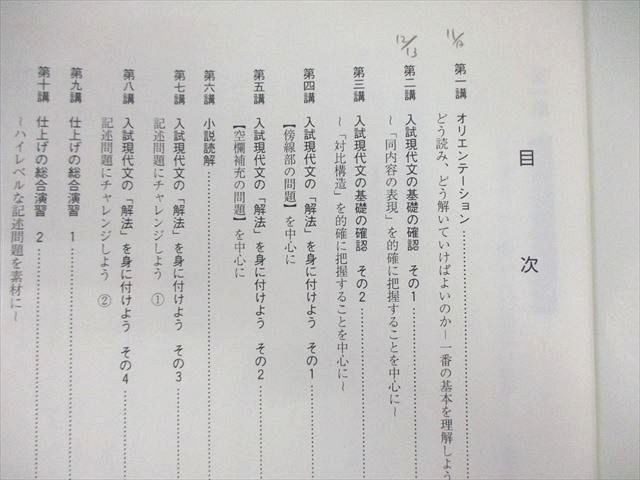 目次
第一講 オリエンテーション
どう読み、どう解いていけばよいのか―一番の基本を理解しよう
第二講 入試現代文の基礎の確認 その1
〜「同内容の表現」を的確に把握することを中心に〜
第三講 入試現代文の基礎の確認 その2
〜「対比構造」を的確に把握することを中心に〜
第四講 入試現代文の「解法」を身に付けよう その1
【傍線部の問題】を中心に
第五講 入試現代文の「解法」を身に付けよう その2
【空欄補充の問題】を中心に
第六講 小説読解
第七講 入試現代文の「解法」を身に付けよう その3
記述問題にチャレンジしよう ①
第八講 入試現代文の「解法」を身に付けよう その4
記述問題にチャレンジしよう ②
第九講 仕上げの総合演習 1
第十講 仕上げの総合演習 2
〜ハイレベルな記述問題を素材に〜